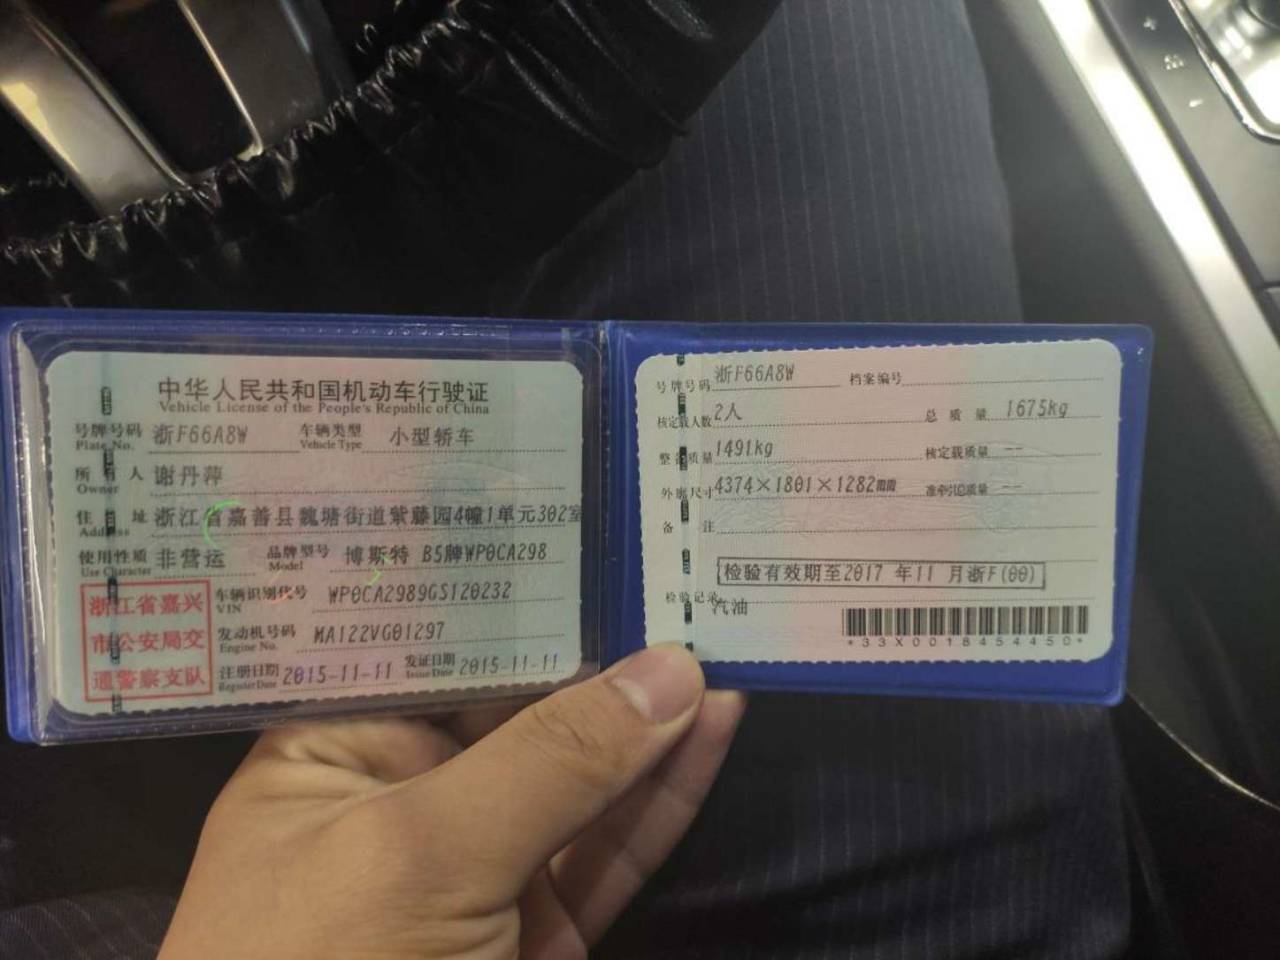 中华人民共和国机动车行驶证
Vehicle License of the People's Republic of China
号牌号码 浙F66A8W 车辆类型 小型轿车
Plate No. Vehicle Type
所有人 谢丹萍
Owner
住址 浙江省嘉善县魏塘街道紫藤园4幢1单元302室
Address
使用性质 非营运 品牌型号 博斯特 B5牌WP0CA298
Use Character Model
浙江省嘉兴
市公安局交
通警察支队
车辆识别代号 WP0CA2989GS120232
VIN
发动机号码 MA122VG01297
Engine No.
注册日期 2015-11-11 发证日期 2015-11-11
Register Date Issue Date
号牌号码 浙F66A8W 档案编号
核定载人数 2人 总质量 1675kg
整备质量 1491kg 核定载质量 --
外廓尺寸 4374×1801×1282 准牵引总质量 --
备注
检验有效期至2017 年11 月浙F(00)
检验记录
汽油
*33X0018454450*